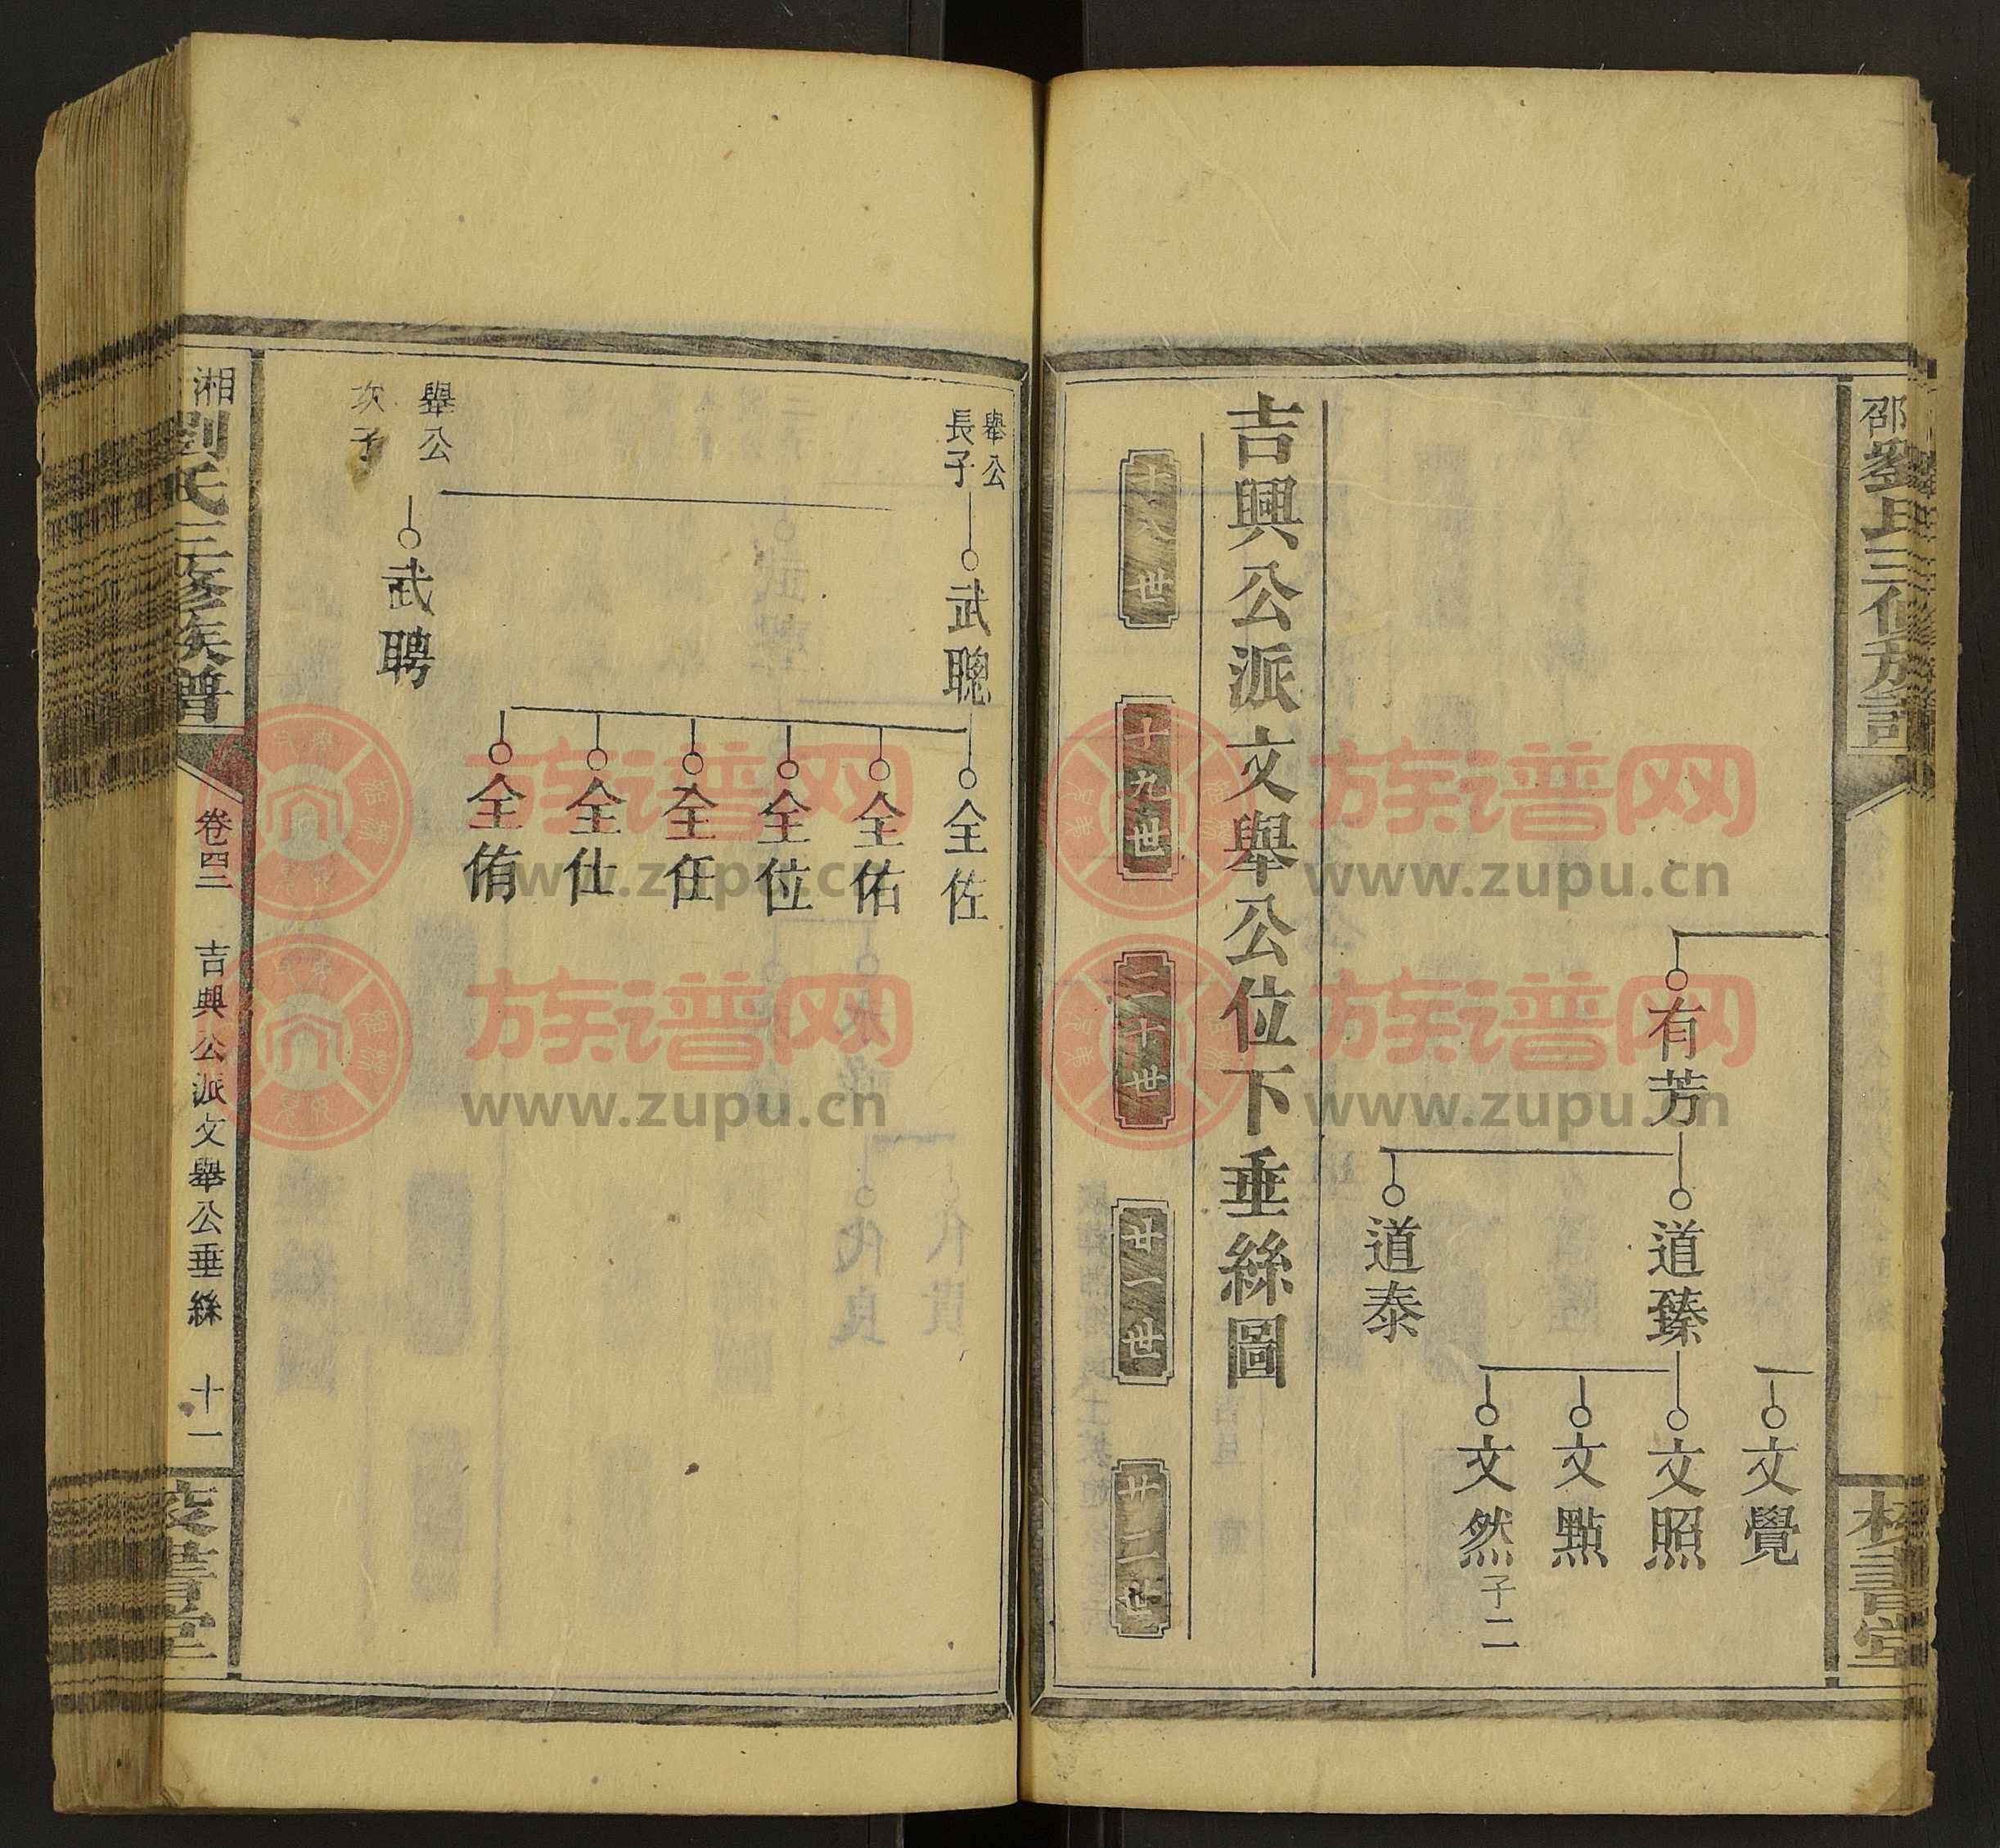 邵
劉氏三修族譜
校書堂
有芳
道臻
道泰
文覺
文照
文點
文然
子二
吉興公派文舉公位下垂絲圖
十八世
十九世
二十世
廿一世
廿二世
舉公
長子
武聰
全佐
全佑
全位
全任
全仕
全侑
舉公
次子
武聘
湘
劉氏三修族譜
卷四二
吉興公派文舉公垂絲
十一
校書堂
族谱网
www.zupu.cn
族谱网
www.zupu.cn
族谱网
www.zupu.cn
族谱网
www.zupu.cn